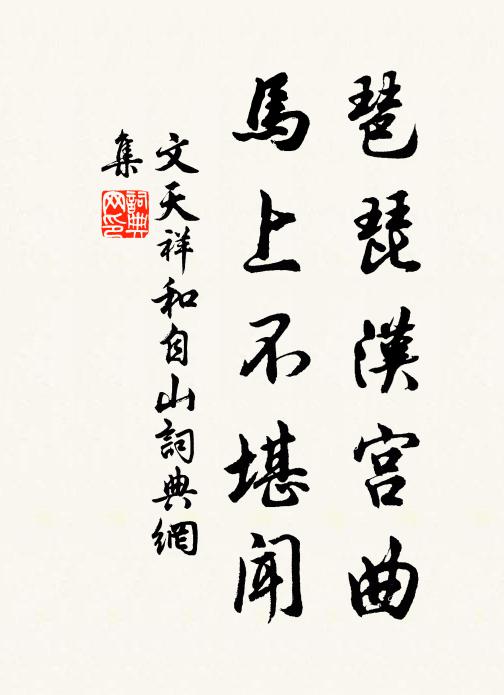 琶琵漢宮曲
馬上不堪聞
文天祥和自山詞典網
集
詞典
网印